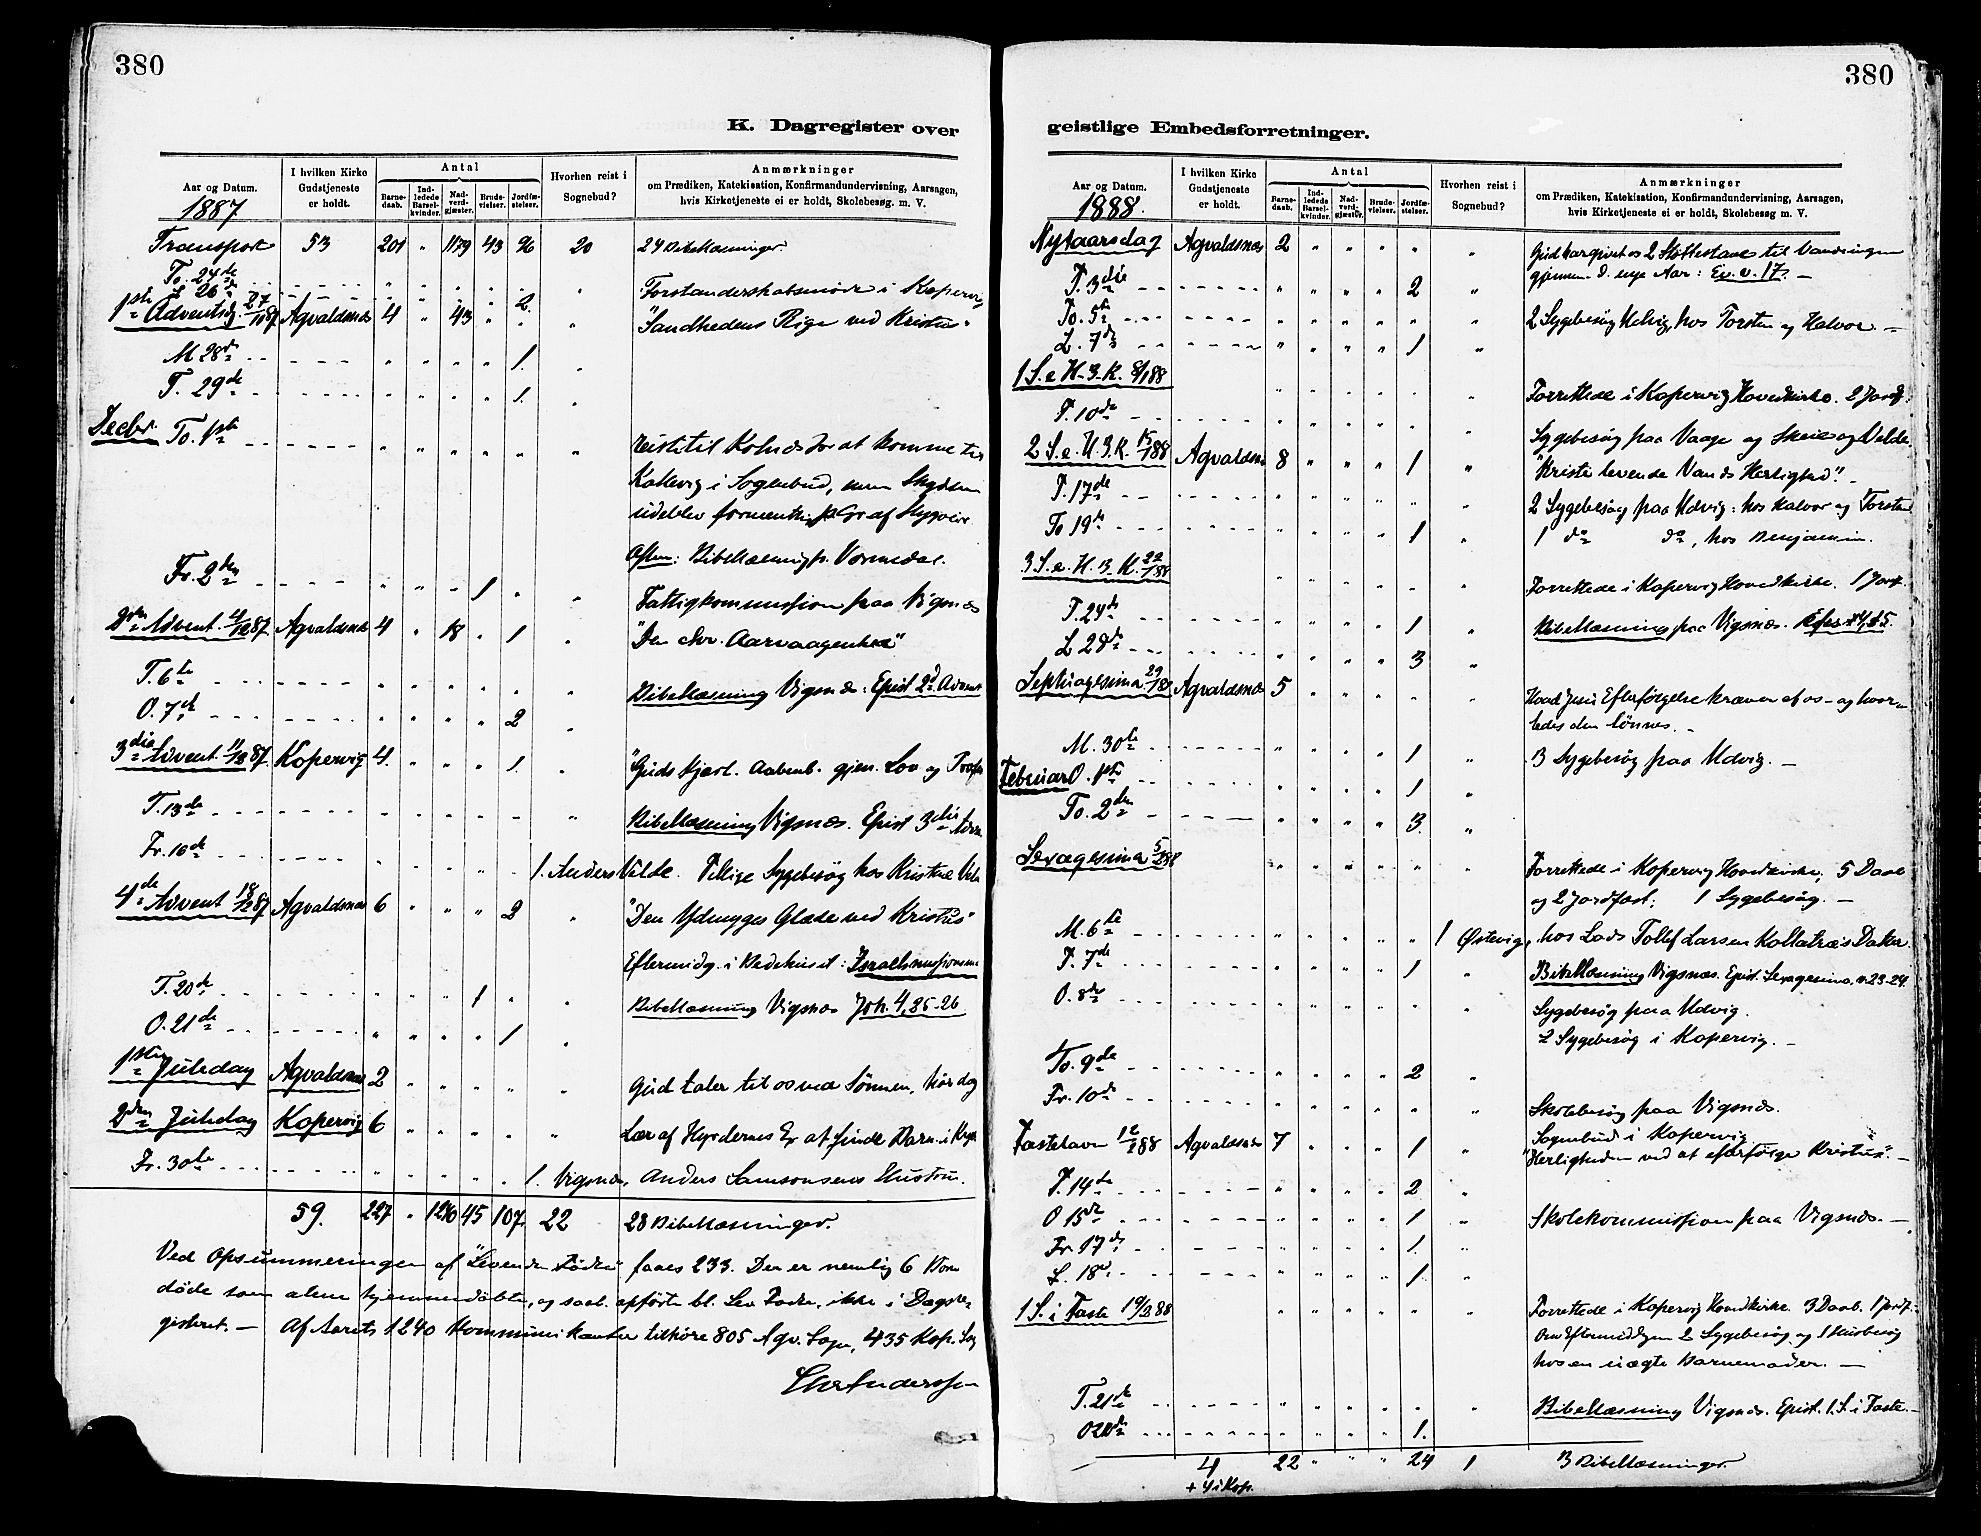 380
K. Dagregister over
Aar og Datum.
1887
I hvilken Kirke Gudstjeneste er holdt.
Antal
Barnedaab.
Indledede Barselkvinder.
Nadverdgjæster.
Brudevielser.
Jordfæstelser.
Hvorhen reist i Sognebud?
Anmærkninger
om Prædiken, Katekisation, Konfirmandundervisning, Aarsagen,
hvis Kirketjeneste ei er holdt, Skolebesøg. m. V.
Transport 53 201 " 1179 43 96 20 24 Bibellæsninger.
To. 24de
L 26de Forstanderskabsmøde i Kopervig
1ste Adventsdg. 27/1187 Agvaldsnæs 4 " 43 " 2. " "Sandhedens Rige ved Kristus"
M 28de 1.
T. 29de 1.
Decbr. To. 1ste reiste til Kolnæs for at komme til
i Sognebud, men Skydsen
udeblev formentlig p. Gr af Stygveir
Aften: Bibellæsning p. Vormedal.
Fr. 2den 1 Fattigkommission paa Vigsnæs
2den Advent 4/1287. Agvaldsnæs 4 " 18 " 1 " "Den chr. Aarvaagenhed"
T. 6te Bibellæsning Vigsnæs: Epist. 2d Advent
O. 7de 2
3die Advent 11/1287. Kopervig 4. " " " 1. " "Guds Kjærl. Aabenb. gjen. Lov og
T. 13de Bibellæsning Vigsnæs. Epist 3die Adven
Fr. 16de 1. Anders Velde. Tillige Sygebesøg hos
4de Advent 18/1287 Agvaldsnæs 6 " " " 2 " "Den Ydmyges Glæde ved Kristus"
Eftermidg. i Bedehuset: Israelsmissionen
T. 20de 1 Bibellæsning Vigsnæs Joh. 4, 25-26
O. 21de 1
1ste Juledag Agvaldsnæs 2 Gud taler til os ved Sønnen, hør dog
2den Juledag Kopervig 6 Lær af Hyrdernes Ex at finde Barn. i
Fr. 30te 1. Vigsnæs, Anders Samsonsens Hustru.
59. 227 " 1240 45 107. 22 28 Bibellæsninger.
Ved Opsummeringen af "Levende Fødte" faaes 233. Der er nemlig 6 Børn
døde som alene hjemmedøbte, og saal. opførte bl. Lev. Fødte, ikke i Dagre-
gisteret. — Af Aarets 1240 Kommunikanter tilhøre 805 Agv. Sogn, 435 Kop. Sog

380
geistlige Embedsforretninger.
Aar og Datum.
1888.
I hvilken Kirke Gudstjeneste er holdt.
Antal
Barnedaab.
Indledede Barselkvinder.
Nadverdgjæster.
Brudevielser.
Jordfæstelser.
Hvorhen reist i Sognebud?
Anmærkninger
om Prædiken, Katekisation, Konfirmandundervisning, Aarsagen,
hvis Kirketjeneste ei er holdt, Skolebesøg m. V.
Nytaarsdag Agvaldsnæs 2 Gud har givet os 2 Støttestave til Vandringen
gjennem d. nye Aar: Ev. v. 17. —
T. 3die 2
To. 5te 2 Sygebesøg hos Torsten og Halvor. —
L. 7de 1
1 S. e H-3-K. 8/188 Forrettede i Kopervig Hovedkirke. 2 Jordf.
T. 10de Sygebesøg paa Vaage og Skeie og Velde
2 S. e. H. 3. K. 15/188 Agvaldsnæs 8 " " " 1 " "Kriste levende Vands Herlighed". —
T. 17de 2 Sygebesøg paa Udvig: hos Halvor og Torsten
To 19de 1 1 do do, hos Benjamin.
3 S. e. H. 3. K. 22/188 Forrettede i Kopervig Hovedkirke. 1 Jordf.
T. 24de 1 Bibellæsning paa Vigsnæs.
L 28de 3
Septuagesima 29/188 Agvaldsnæs 5 Hvad Jesu Efterfølgelse kræver af os - og hvor-
ledes den lønnes. —
M. 30te 1 3 Sygebesøg paa Udvig. —
Februar O. 1ste 1
To. 2den 3.
Sexagesima 5/288 Forrettede i Kopervig Hovedkirke, 5 Daab
og 2 Jordfæst; 1 Sygebesøg. —
M. 6te 1 Østevig, hos Lods Tollef Larsen Datter.
T. 7de 1 " Bibellæsning Vigsnæs. Epist. Sexagesima. v. 23-24.
O. 8de Sygebesøg paa Udvig.
2 Sygebesøg i Kopervig. —
To. 9de 2
Fr. 10de Skolebesøg paa Vigsnæs.
Sognebud i Kopervig
Fastelavn 12/288 Agvaldsnæs 7 " " " 1 " "Herligheden ved at efterfølge Kristus". —
T. 14de 2
O 15de 1 Skolekommission paa Vigsnæs. —
Fr. 17de 1.
L. 18de 1.
1 S. i Faste 19/288 Forrettede i Kopervig Hovedkirke. 3 Daab. 1 Jordf.
Om Eftermiddagen 2 Sygebesøg og 1 Husbesøg
hos en uægte Barnemoder. —
T. 21de Bibellæsning Vigsnæs. Epist. 1. S. i Faste. —
O 22de 1.
4 22 " " " 24 1 3 Bibellæsninger.
+ 4 i Kop.